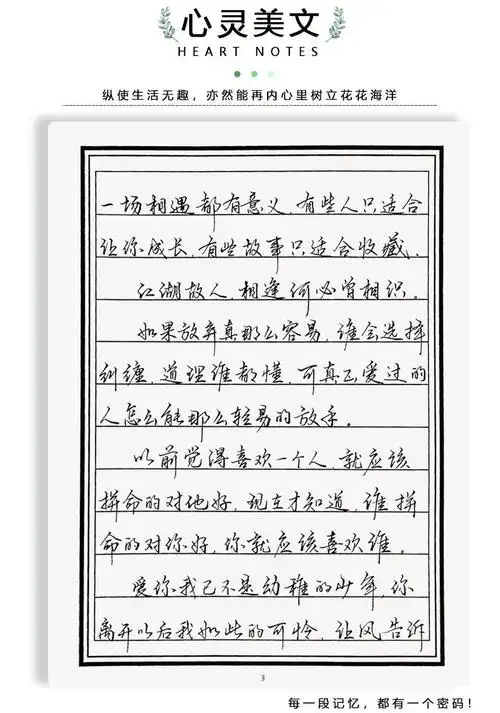 心灵美文
HEART NOTES
纵使生活无趣，亦然能再内心里树立花花海洋
一场相遇都有意义，有些人只适合
让你成长，有些故事只适合收藏，
江湖故人，相逢何必曾相识。
如果放弃真那么容易，谁会选择
纠缠，道理谁都懂，可真正爱过的
人怎么能那么轻易的放手。
以前觉得喜欢一个人，就应该
拼命的对他好，现在才知道，谁拼
命的对你好，你就应该喜欢谁。
爱你我已不是幼稚的少年，你
离开以后我如此的可怜，让风告诉
3
每一段记忆，都有一个密码！